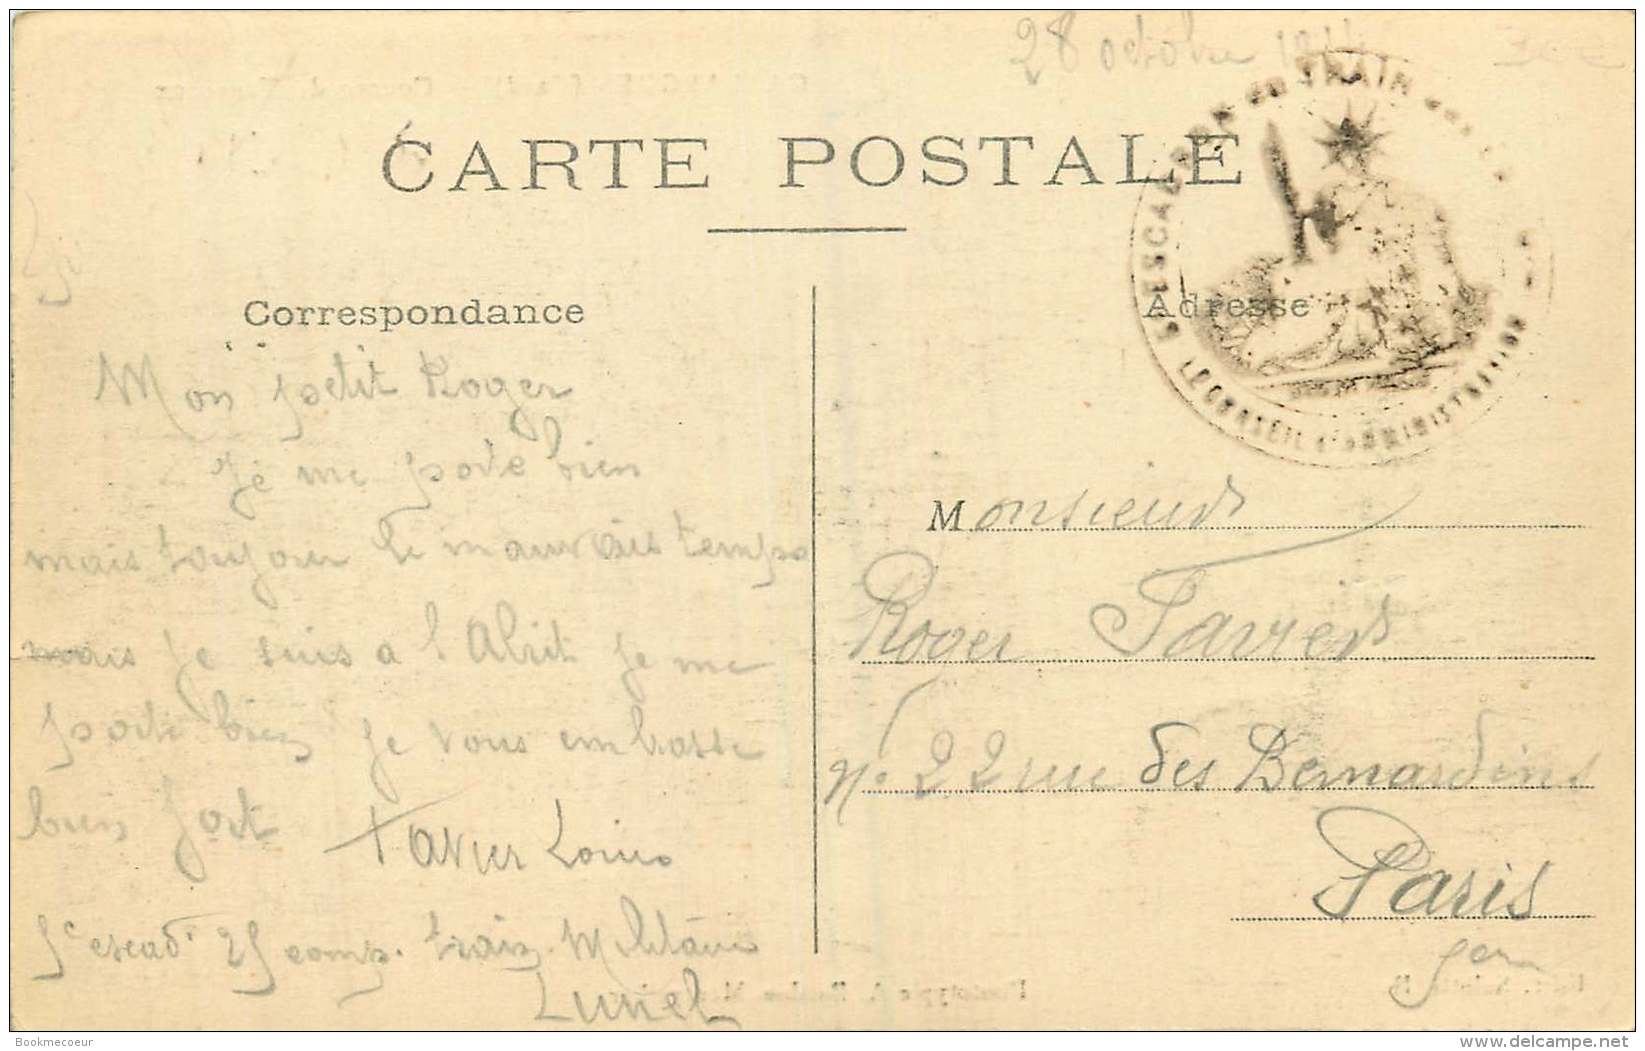 28 octobre 1914
CARTE POSTALE
ESCADRON du TRAIN des
LE CONSEIL D'ADMINISTRATION
Correspondance
Adresse
Mon petit Roger
Je me porte bien
mais toujour le mauvais temps
mais je suis a l'Abrit je me
porte bien je vous embrasse
bien fort Tavier Louis
escad 25 comp. train Militaire
Lunel
Monsieur
Roger Tavier
n° 22 rue des Bernardins
Paris
5em
Phototypie A.
Bookmecoeur
delcampe.net